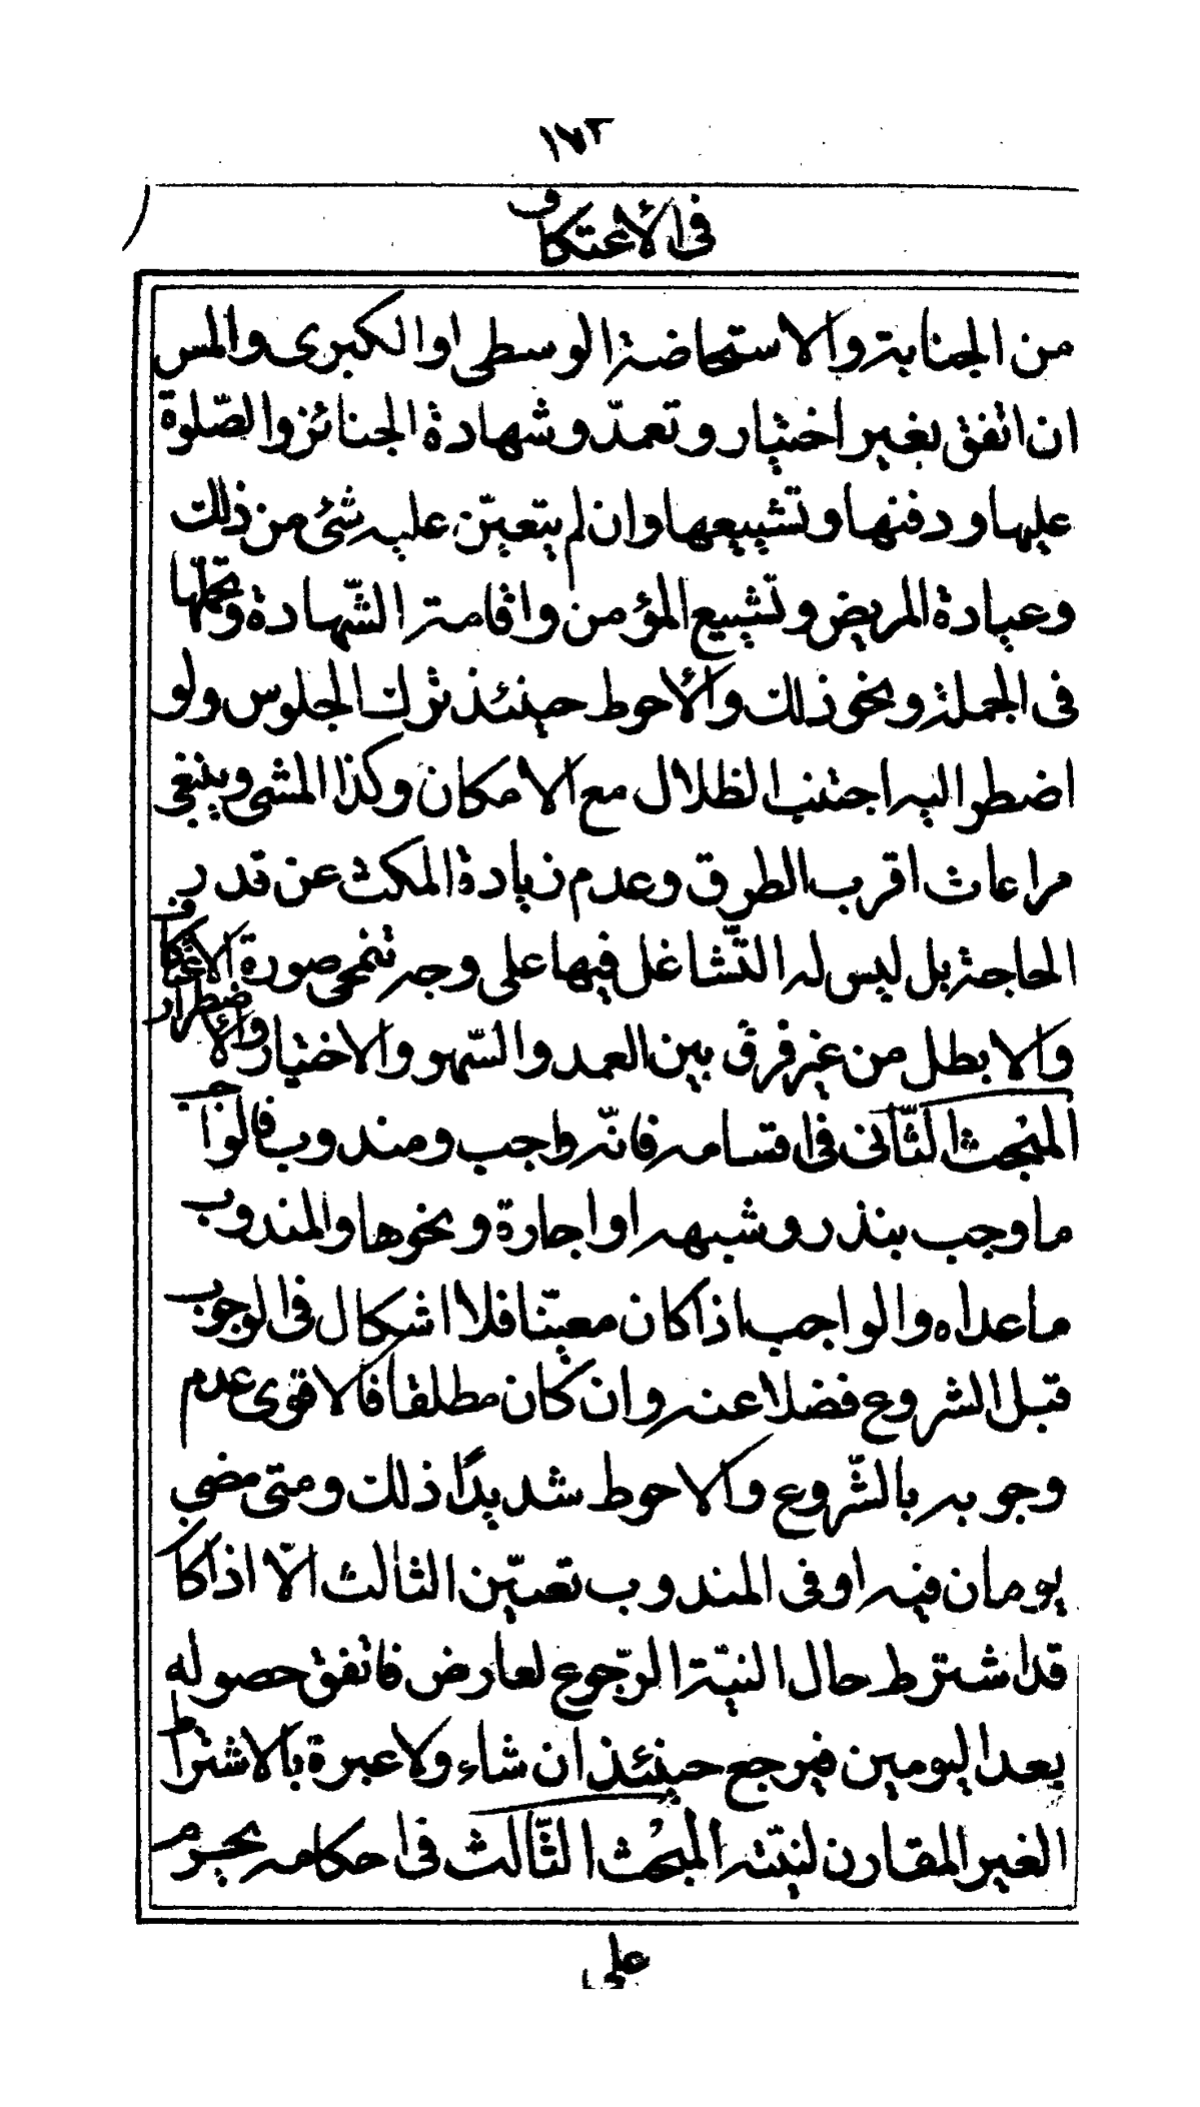 ١٧٢
فى الأعتكاف
من الجنابة والاستحاضة الوسطى او الكبرى والمس
ان اتفق بغير اختيار وتعمدّ وشهادة الجنائز والصّلوة
عليها ودفنها وتشييعها وان لم يتعيّن عليه شئ من ذلك
وعيادة المريض وتشييع المؤمن واقامة الشّهادة وتحمّلها
فى الجملة ونحو ذلك والأحوط حينئذ ترك الجلوس ولو
اضطر اليه اجتنب الظلال مع الامكان وكذا المشى وينبغى
مراعات اقرب الطرق وعدم زيادة المكث عن قدر
الحاجة بل ليس له التّشاغل فيها على وجه تنمحى صورة الاعتكاف
والا بطل من غير فرق بين العمد والسّهو والاختيار والأضطرار
المبحث الثّانى فى اقسامه فانّه واجب ومندوب فالواجب
ما وجب بنذر وشبهه او اجارة ونحوها والمندوب
ما عداه والواجب اذا كان معيّنا فلا اشكال فى الوجوب
قبل الشروع فضلا عنه وان كان مطلقا فالاقوى عدم
وجوبه بالشّروع والاحوط شديدًا ذلك ومتى مضى
يومان فيه او فى المندوب تعيّن الثالث الّا اذا كا
قد اشترط حال النيّة الرّجوع لعارض فاتفق حصوله
بعد اليومين فيرجع حينئذ ان شاء ولا عبرة بالاشتراط
الغير المقارن لنيّته المبحث الثّالث فى احكامه يحرم
على